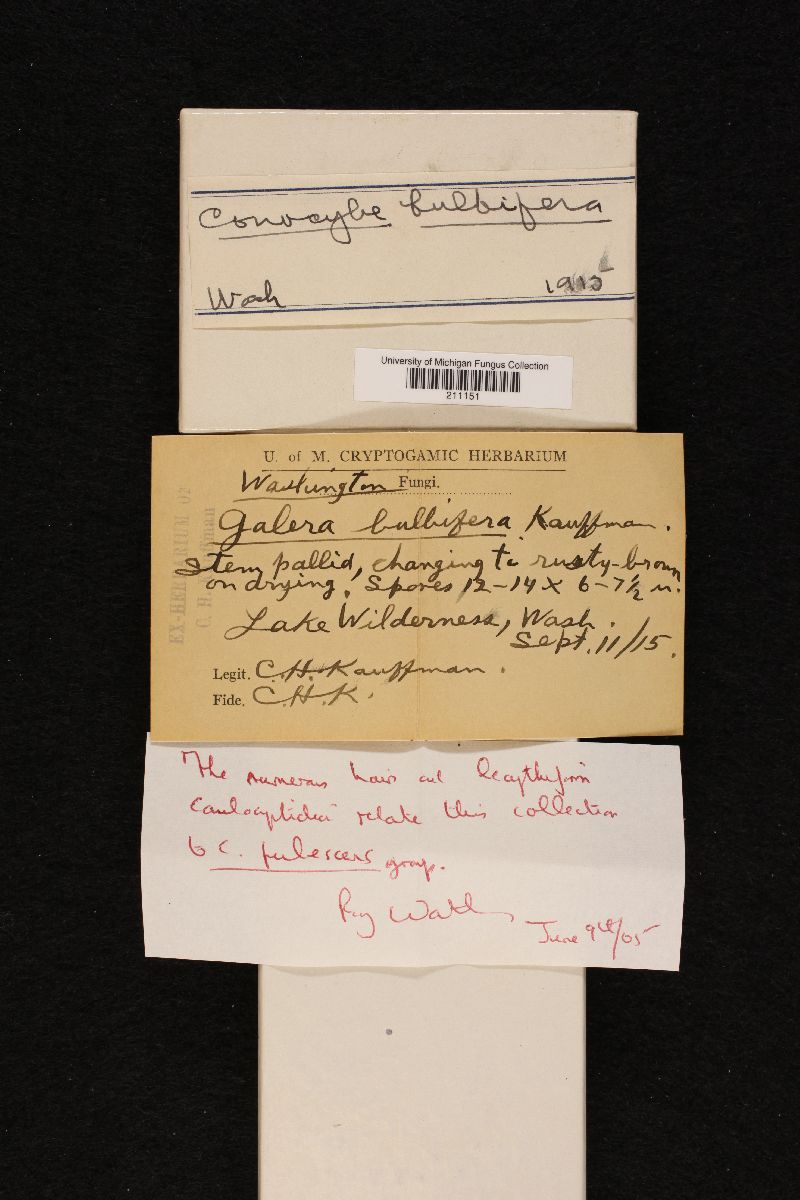 Conocybe bulbifera
Wash 1915
University of Michigan Fungus Collection
211151
U. of M. CRYPTOGAMIC HERBARIUM
Washington Fungi.
Galera bulbifera Kauffman.
Stem pallid, changing to rusty-brown
on drying. Spores 12-14 x 6-7½ u.
Lake Wilderness, Wash.
Sept. 11/15.
Legit. C.H. Kauffman.
Fide. C.H.K.
EX-HERBARIUM OF
C. H. Kauffman
The numerous hairs and lecythiform
caulocystidia relate this collection
to C. pubescens group.
Roy Watling
June 9th/05